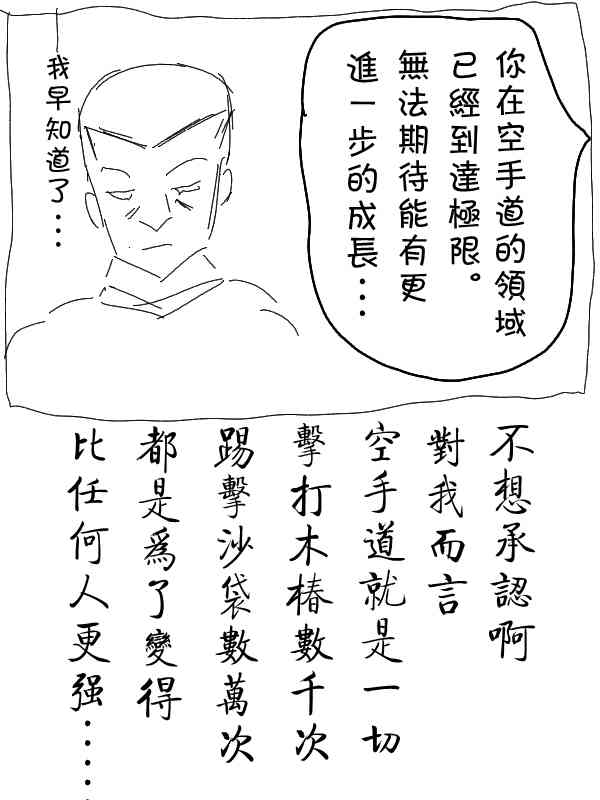 你在空手道的領域
已經到達極限。
無法期待能有更
進一步的成長...
我早知道了...
不想承認啊
對我而言
空手道就是一切
擊打木樁數千次
踢擊沙袋數萬次
都是爲了變得
比任何人更强......